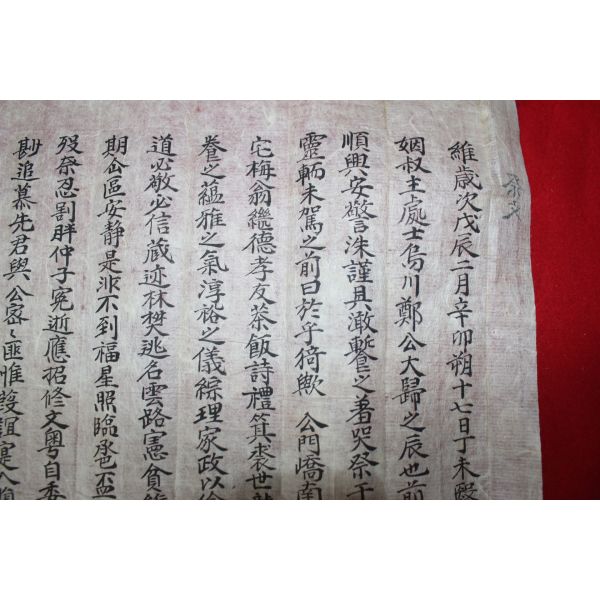 祭文
維歲次戊辰二月辛卯朔十七日丁未
姻叔主處士烏川鄭公大歸之辰也前
順興安謹具漱之羞哭祭于
靈輀未駕之前曰於乎猗歟 公門嶠南
宅梅翁繼德孝友茶飯詩禮箕裘世
養之蘊雅之氣淳裕之儀綜理家政以
道必敬必信藏迹林樊逃名雲路憲貧
期岳區安靜是非不到福星照臨巹盃
歿祭忍割胖仲子冤逝應招修文粤自委
追慕先君與公密〻匪惟誼寔